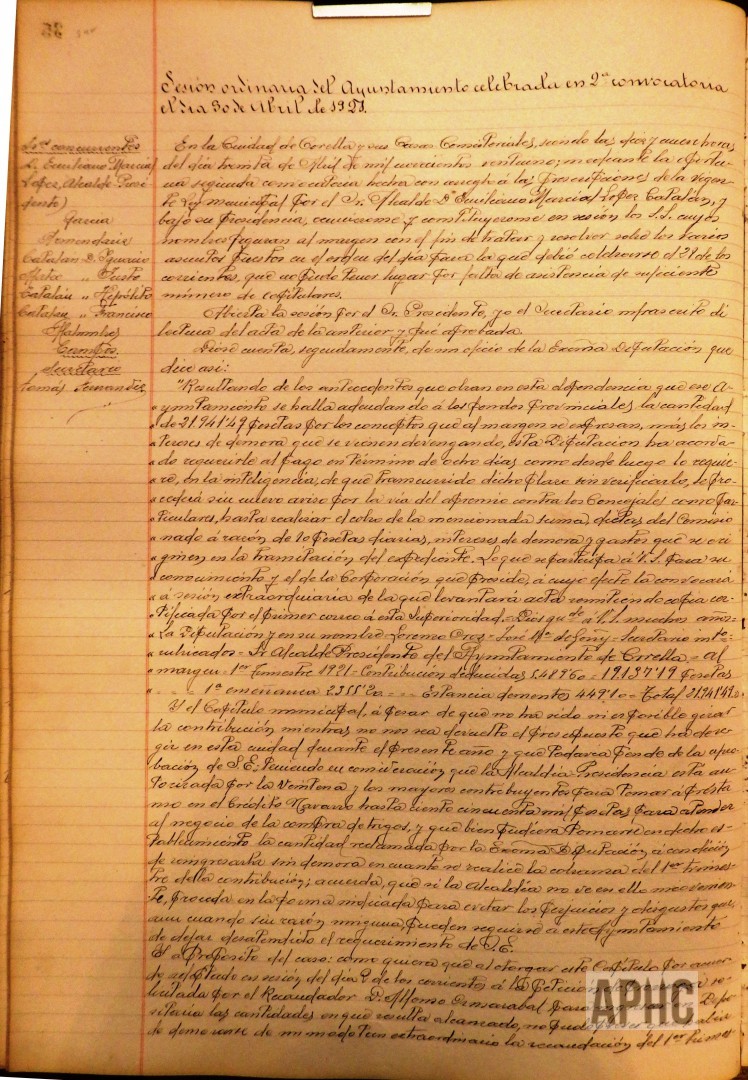 Sesión ordinaria del Ayuntamiento celebrada en 2ª convocatoria
el dia 30 de Abril de 1921.
Sres concurrentes
D. Emiliano Marcial
Lopez, Alcalde Presi-
dente)
Garcia
Armendariz
Catalán D. Ignacio
" Justo
Catalán " Hipólito
Catalán " Francisco
Secretario
Tomás Fernandez
En la Ciudad de Corella y sus Casas Consistoriales, siendo las diez y nueve horas
del dia treinta de Abril de mil novecientos veintiuno; mediante la oportu-
na segunda convocatoria hecha con arreglo á las prescripciones de la vigen-
te Ley municipal por el Sr. Alcalde D. Emiliano Marcial Lopez Catalán, y
bajo su Presidencia, y constituyeronse en sesión los S.S. cuyos
nombres figuran al margen con el fin de tratar y resolver sobre los varios
asuntos puestos en el orden del dia para la que debió celebrarse el 21 de los
corrientes, que no pudo tener lugar por falta de asistencia de suficiente
número de capitulares.
Abierta la sesión por el Sr. Presidente, yo el Secretario infrascrito di
lectura del acta de la anterior y fué aprobada.
Diose cuenta, seguidamente, de un oficio de la Excma Diputación que
dice asi:
"Resultando de los antecedentes que obran en esta dependencia que ese A-
yuntamiento se halla adeudando á los fondos provinciales la cantidad
de 21.941'49 pesetas por los conceptos que al margen se expresan, más los in-
tereses de demora que se vienen devengando, esta Diputación ha acorda-
do requerirle al pago en término de ocho dias como desde luego le requie-
ro, en la inteligencia, de que transcurrido dicho plazo sin verificarlo, se pro-
cederá sin nuevo aviso por la via del apremio contra los Concejales como par-
ticulares, hasta realizar el cobro de la mencionada suma, dietas del Comisio-
nado á razón de 20 pesetas diarias, intereses de demora y gastos que se ori-
ginen en la tramitación del expediente. Lo que se participa á V.S. para su
conocimiento y el de la Corporación que preside, á cuyo efecto la convocará
á sesión extraordinaria de la que levantará acta remitiendo copia cer-
tificada por el primer correo á esta Superioridad. Dios gue á V.S. muchos años=
La Diputación y en su nombre Lorenzo Oroz - José Mª Secretario intº=
rubricados= Sr. Alcalde Presidente del Ayuntamiento de Corella= Al
margen= 1er Trimestre 1921= Contribución deducidas 5487'60= 19137'19 pesetas
" " 1ª enseñanza 2355'20= Estancia dementes 449'10= Total 21.941'49."
Y el Capitulo municipal, á pesar de que no ha sido ni es posible girar
la contribución mientras no nos sea devuelto el presupuesto que ha de re-
gir en esta ciudad durante el presente año y que todavia pende de la apro-
bación de S.E.: teniendo en consideración que la Alcaldia Presidencia está au-
torizada por la Veintena y los mayores contribuyentes para tomar á présta-
mo en el Crédito Navarro hasta ciento cincuenta mil pesetas para atender
al negocio de la compra de trigos, y que bien pudiera tomarse en dicho es-
tablecimiento la cantidad reclamada por la Excma Diputación á condición
de reingresarla sin demora en cuanto se realice la cobranza del 1er trimes-
tre de la contribución; acuerda, que si la Alcaldia no ve en ello inconvenien-
te, proceda en la forma indicada para evitar los perjuicios y disgustos que,
aun cuando sin razón ninguna, pueden seguirse á este Ayuntamiento
de dejar desatendido el requerimiento de S.E.
Y á propósito del caso: como quiera que al otorgar este Capitulo por acuer-
do adoptado en sesión del dia 2 de los corrientes á la petición
licitada por el Recaudador D. Alfonso para Depo-
sitaria las cantidades en que resulta alcanzado, no pudo
de demorarse de un modo tan extraordinario la recaudación del 1er trimes-
APHC